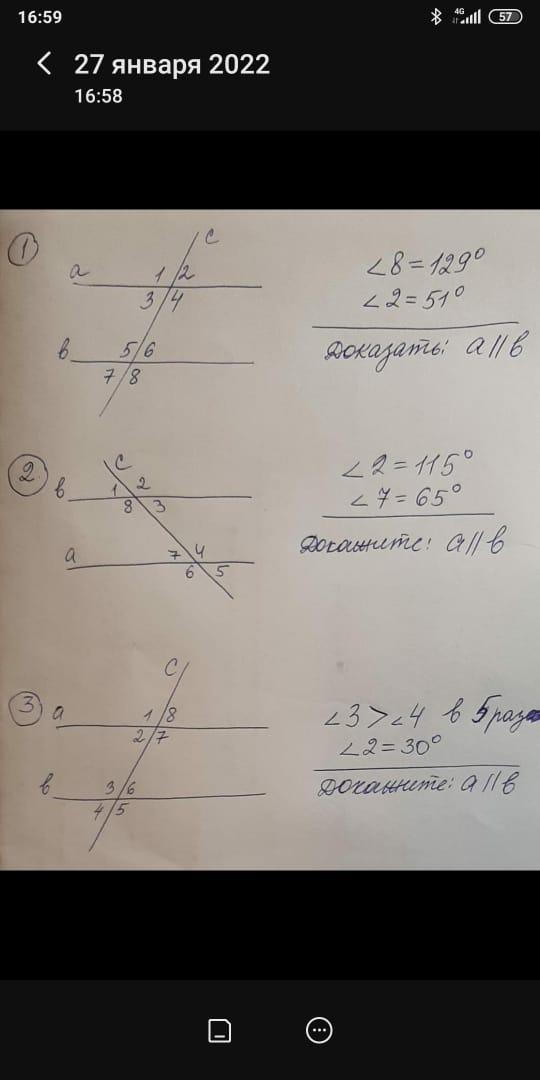 16:59
4G
57
27 января 2022
16:58
1
c
a 1 2
3 4
в 5 6
7 8
∠8 = 129°
∠2 = 51°
Доказать: a || в
2
c
в 1 2
8 3
a 7 4
6 5
∠2 = 115°
∠7 = 65°
Докажите: a || в
3
c
a 1 8
2 7
в 3 6
4 5
∠3 > ∠4 в 5 раз
∠2 = 30°
Докажите: a || в